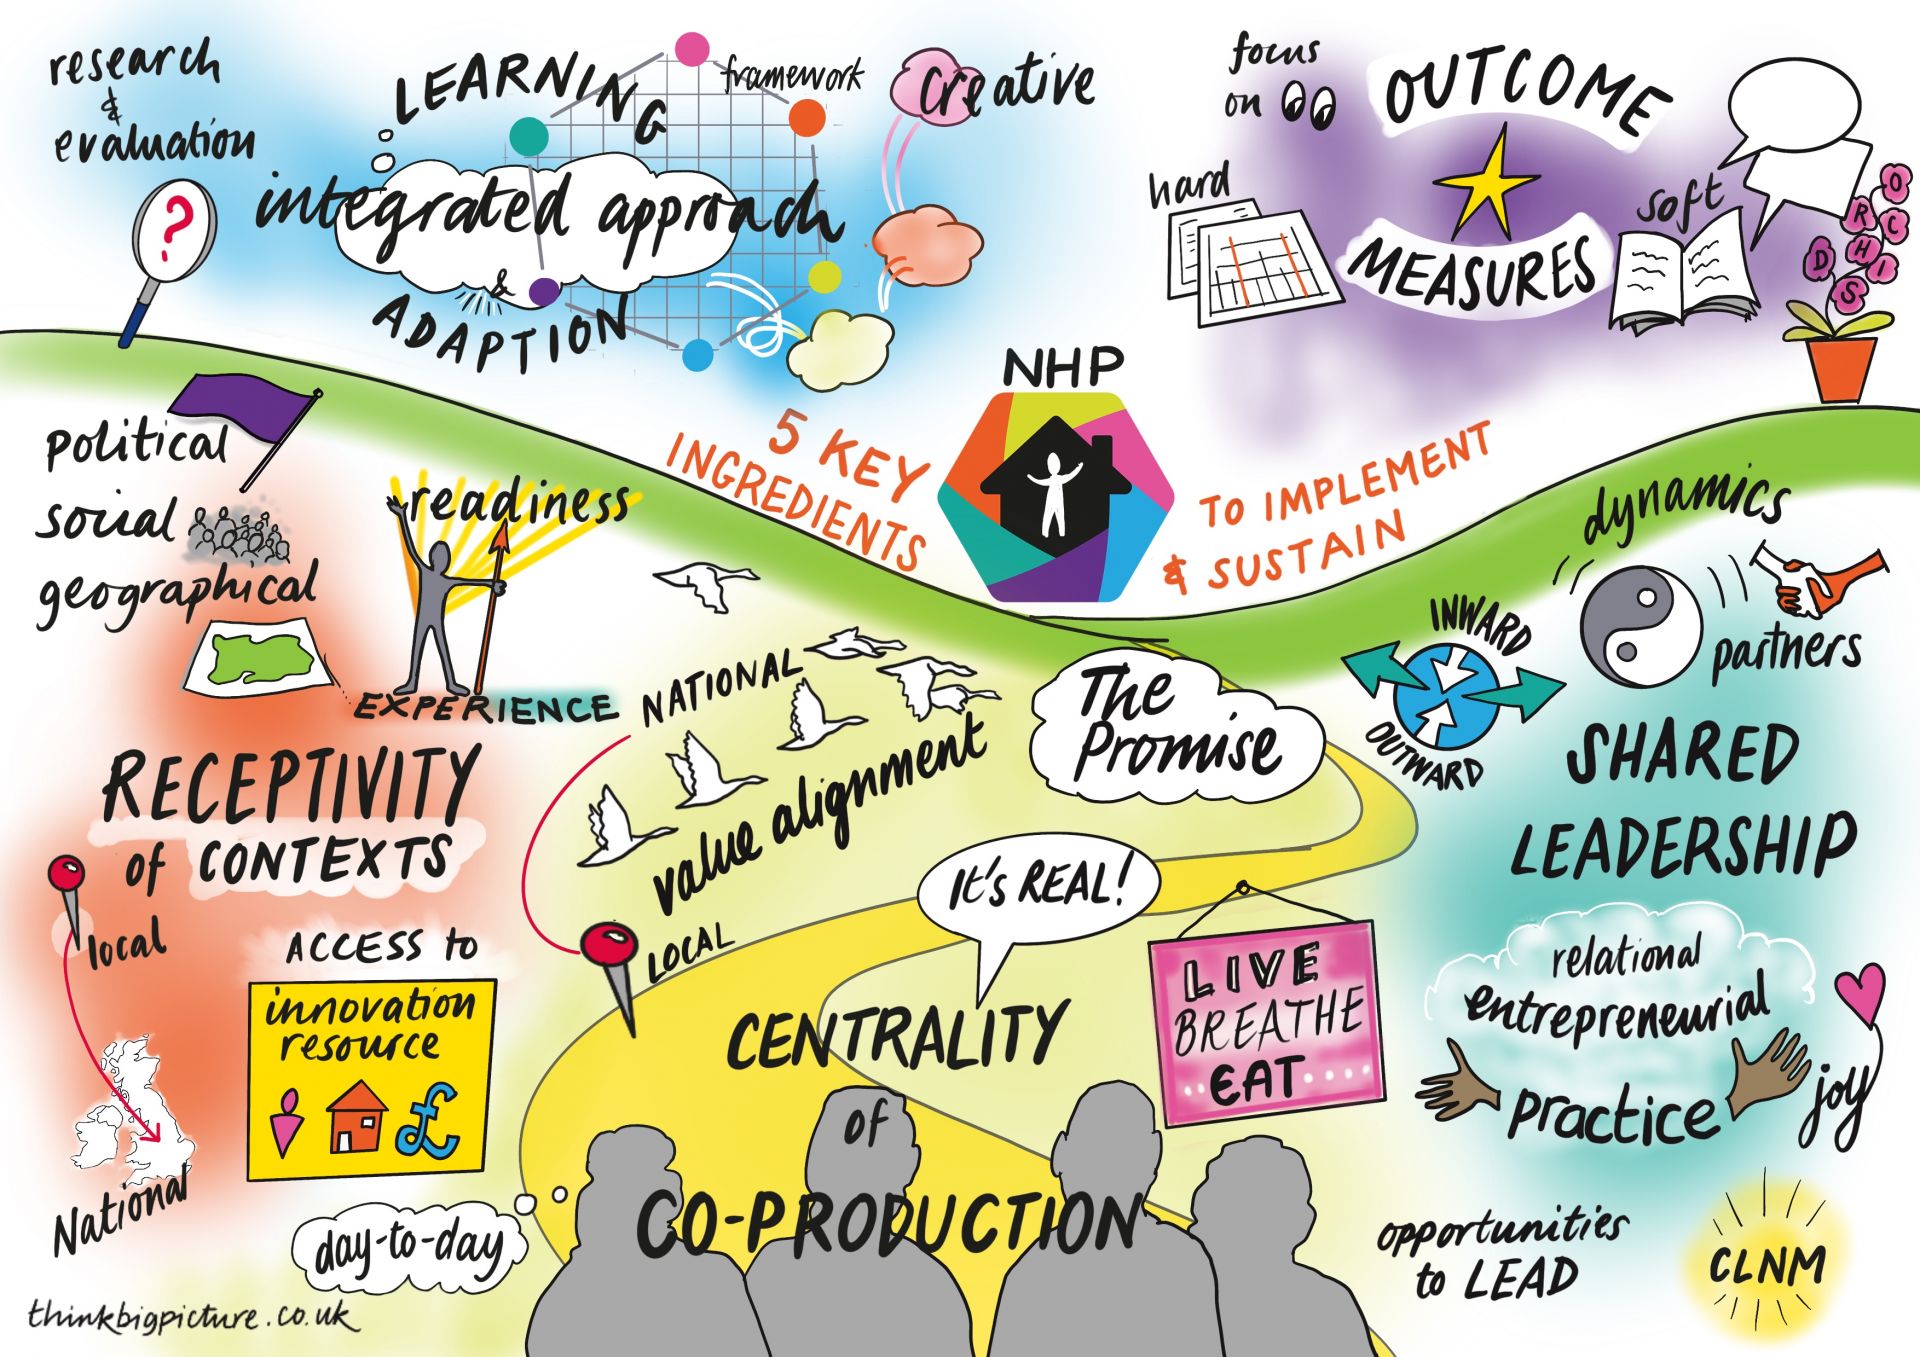 research
&
evaluation
LEARNING
framework
integrated approach
&
ADAPTION
creative
focus
on
OUTCOME
MEASURES
hard
soft
ORCHIDS
NHP
5 KEY
INGREDIENTS
TO IMPLEMENT
& SUSTAIN
political
social
geographical
readiness
EXPERIENCE
RECEPTIVITY
of CONTEXTS
local
National
ACCESS to
innovation
resource
£
day-to-day
NATIONAL
value alignment
LOCAL
The
Promise
It's REAL!
CENTRALITY
of
CO-PRODUCTION
LIVE
BREATHE
EAT
dynamics
partners
INWARD
OUTWARD
SHARED
LEADERSHIP
relational
entrepreneurial
practice
joy
opportunities
to LEAD
CLNM
thinkbigpicture.co.uk